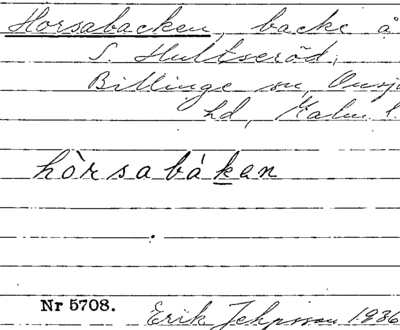 Horsabacken, backe å
S. Hultseröd,
Billinge sn, Onsjö
hd, Malm. l.
hòrsabákan
Nr 5708. Erik Jepsson 1936